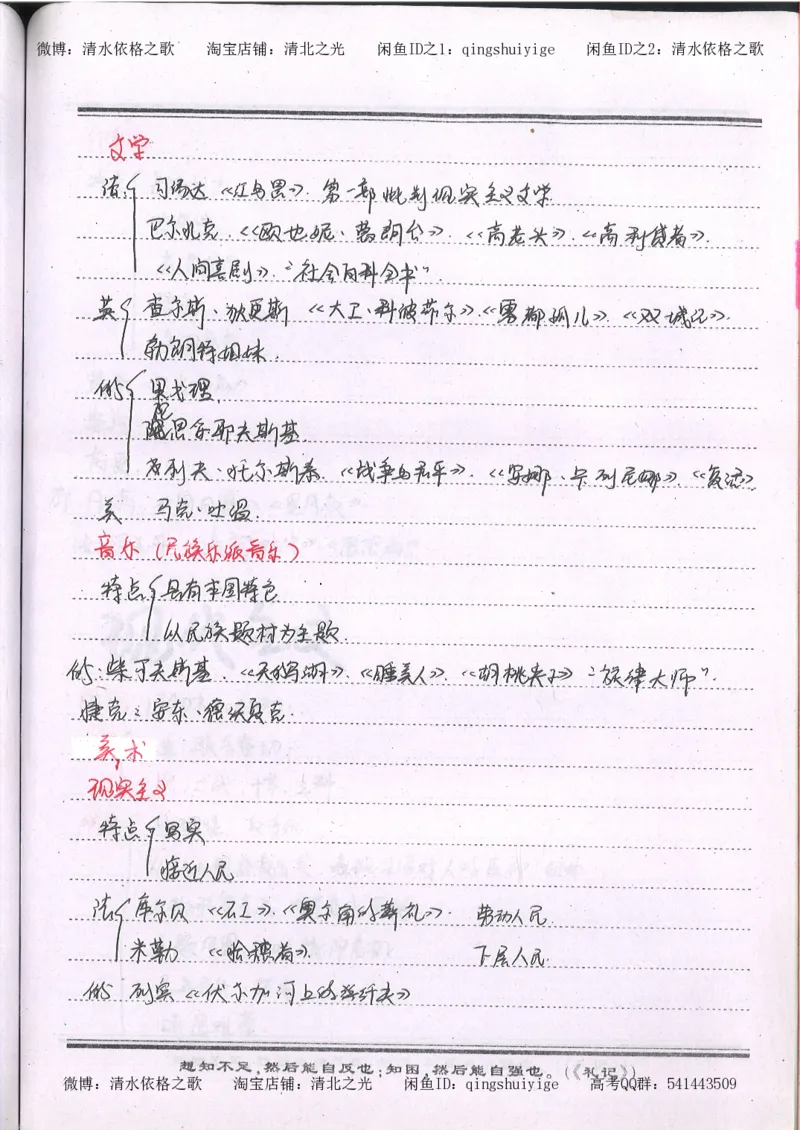 微博：清水依格之歌 淘宝店铺：清北之光 闲鱼ID之1：qingshuiyige 闲鱼ID之2：清水依格之歌
文学
法 司汤达 《红与黑》. 第一部批判现实主义文学
巴尔扎克.《欧也妮·葛朗台》.《高老头》.《高利贷者》.
《人间喜剧》."社会百科全书".
英 查尔斯·狄更斯 《大卫·科波菲尔》.《雾都孤儿》.《双城记》.
勃朗特姐妹.
俄 果戈理.
陀思妥耶夫斯基.
列夫·托尔斯泰.《战争与和平》.《安娜·卡列尼娜》.《复活》
美 马克·吐温.
音乐（民族乐派音乐）
特点 具有本国特色
以民族题材为主题.
俄：柴可夫斯基.《天鹅湖》.《睡美人》.《胡桃夹子》"旋律大师".
捷克：安东·德沃夏克.
美术
现实主义
特点 写实
接近人民
法 库尔贝 《石工》.《奥尔南的葬礼》. 劳动人民.
米勒 《拾穗者》. 下层人民.
俄 列宾《伏尔加河上的纤夫》
想知不足，然后能自反也；知困，然后能自强也。（《礼记》）
微博：清水依格之歌 淘宝店铺：清北之光 闲鱼ID：qingshuiyige 高考QQ群：541443509